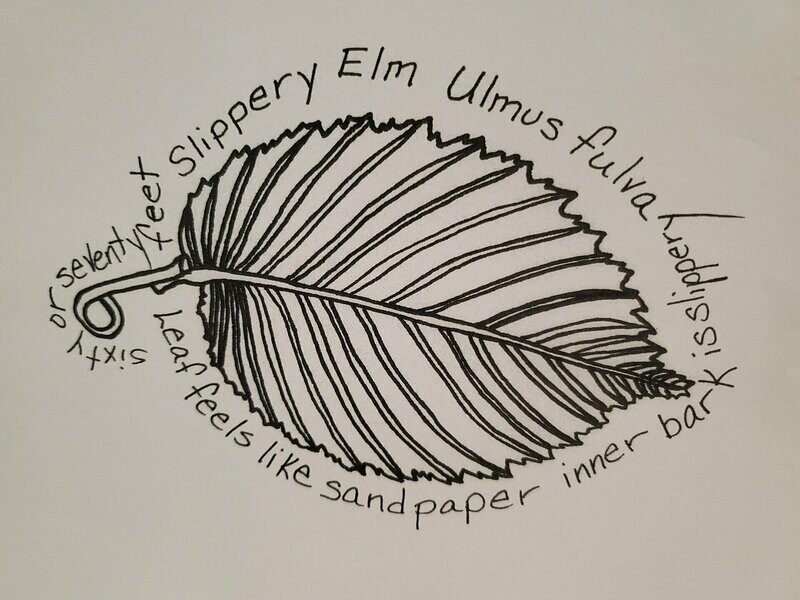 Slippery Elm Ulmus fulva
Leaf feels like sandpaper inner bark is slippery
sixty or seventy feet